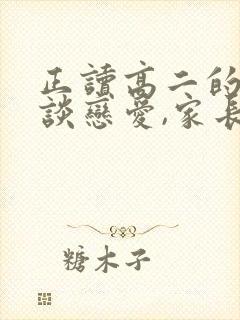 正讀高二的
談戀愛,家長
糖木子